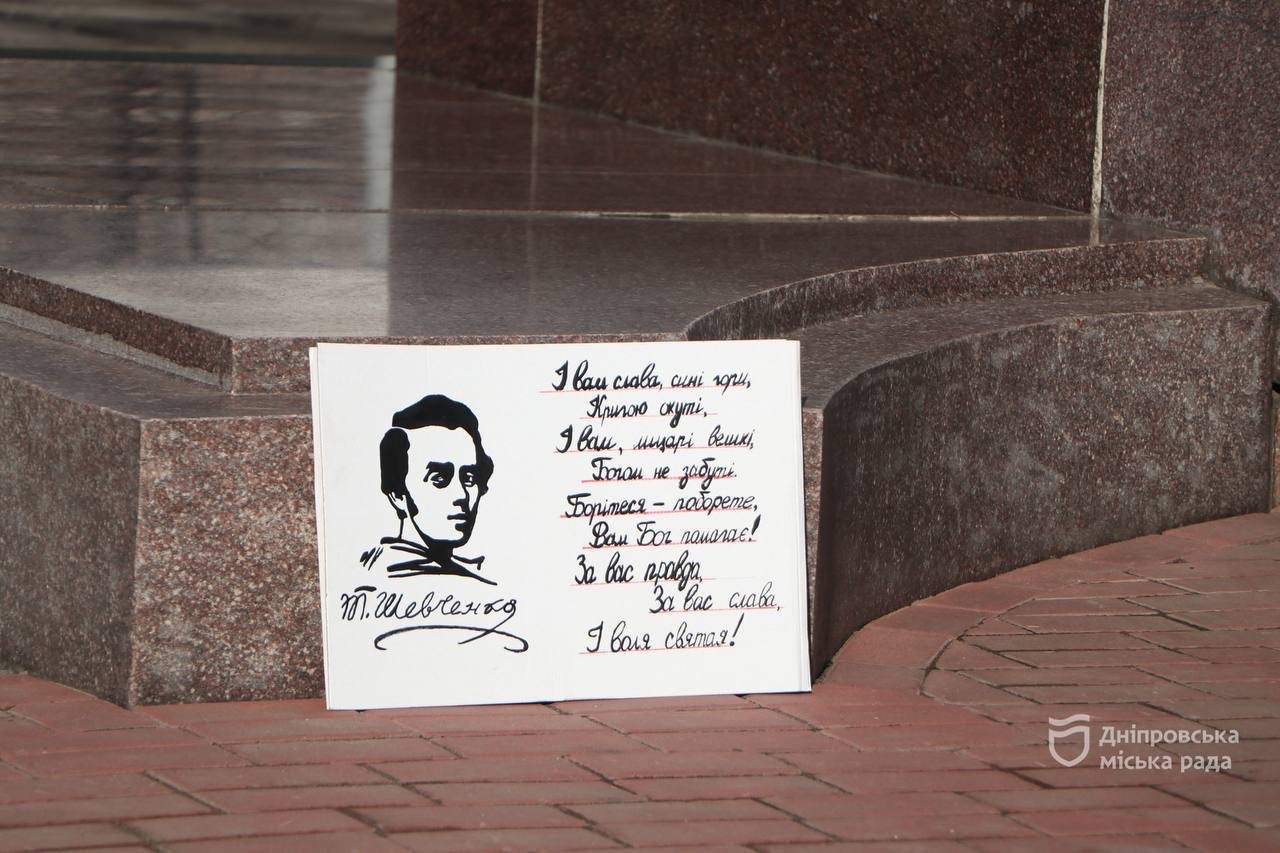 Т. Шевченко
І вам слава, сині гори,
Кригою окуті,
І вам, лицарі великі,
Богом не забуті.
Борітеся – поборете,
Вам Бог помагає!
За вас правда,
За вас слава,
І воля святая!
Дніпровська
міська рада